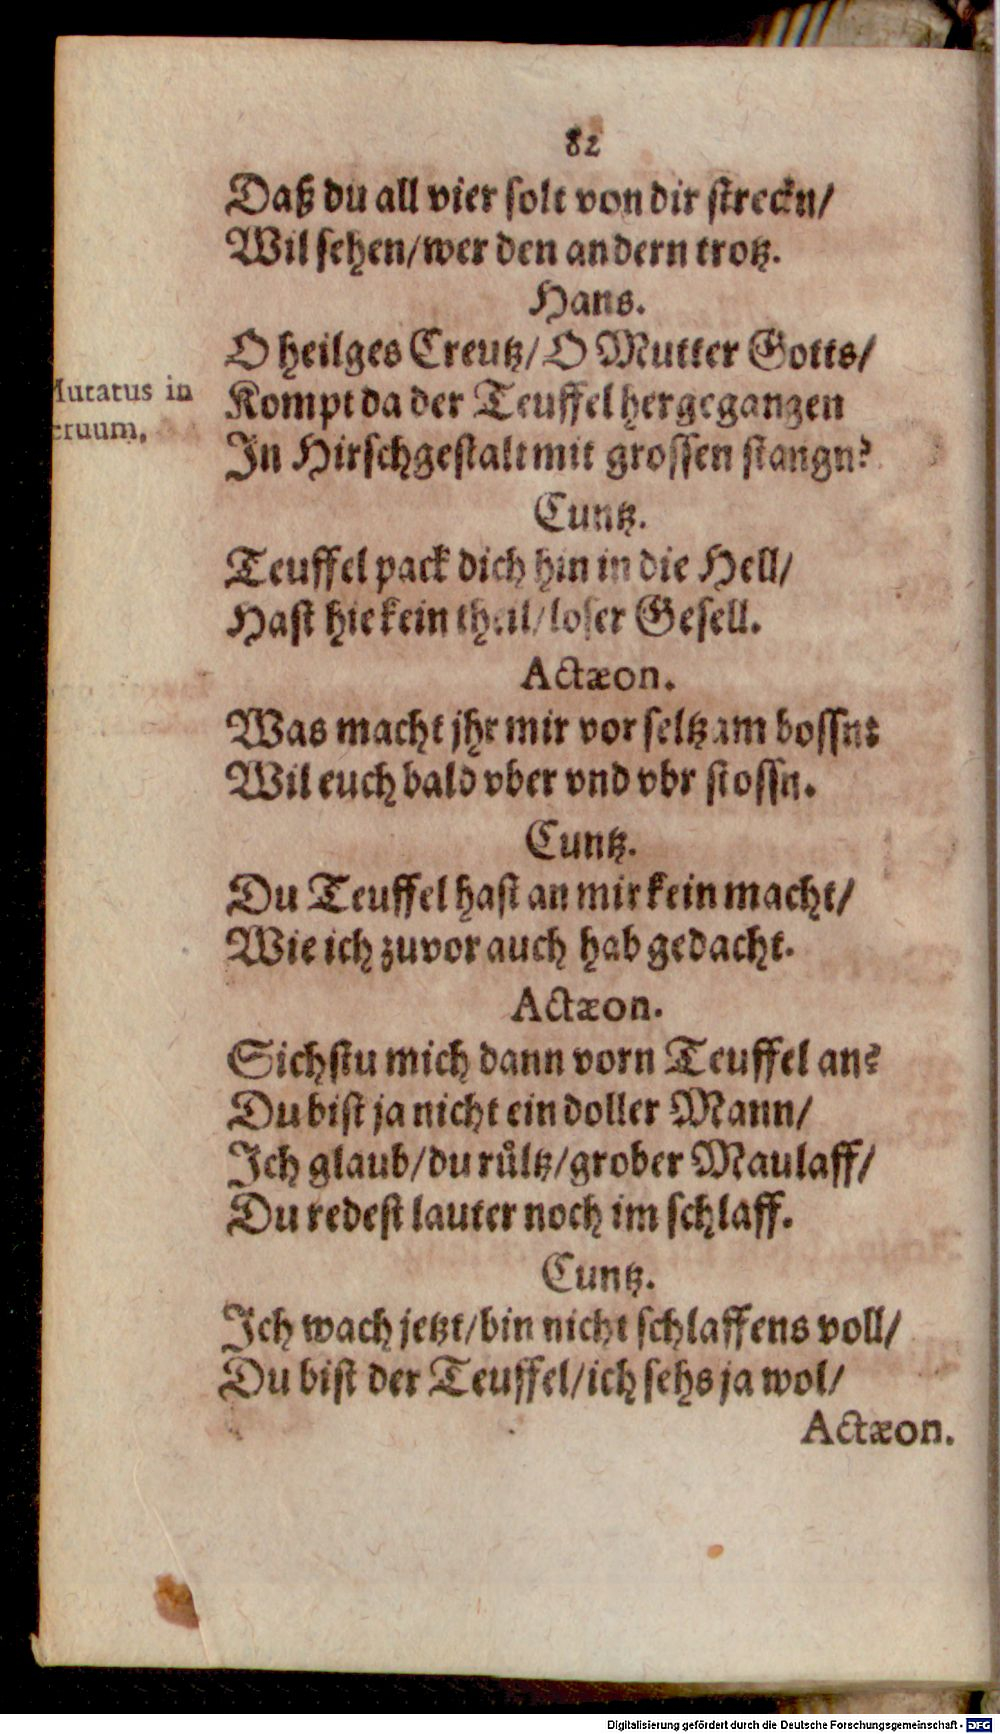 82
Daß du all vier solt von dir streckn/
Wil sehen/wer den andern trotz.
Hans.
O heilges Creutz/O Mutter Gotts/
Mutatus in
ceruum,
Kompt da der Teuffel hergegangen
In Hirschgestalt mit grossen stangn?
Cuntz.
Teuffel pack dich hin in die Hell/
Hast hie kein theil/loser Gesell.
Actæon.
Was macht jhr mir vor seltzam bossn?
Wil euch bald vber vnd vbr stossn.
Cuntz.
Du Teuffel hast an mir kein macht/
Wie ich zuvor auch hab gedacht.
Actæon.
Sichstu mich dann vorn Teuffel an?
Du bist ja nicht ein doller Mann/
Ich glaub/du růltz/grober Maulaff/
Du redest lauter noch im schlaff.
Cuntz.
Ich wach jetzt/bin nicht schlaffens voll/
Du bist der Teuffel/ich sehs ja wol/
Actæon.
Digitalisierung gefördert durch die Deutsche Forschungsgemeinschaft - DFG